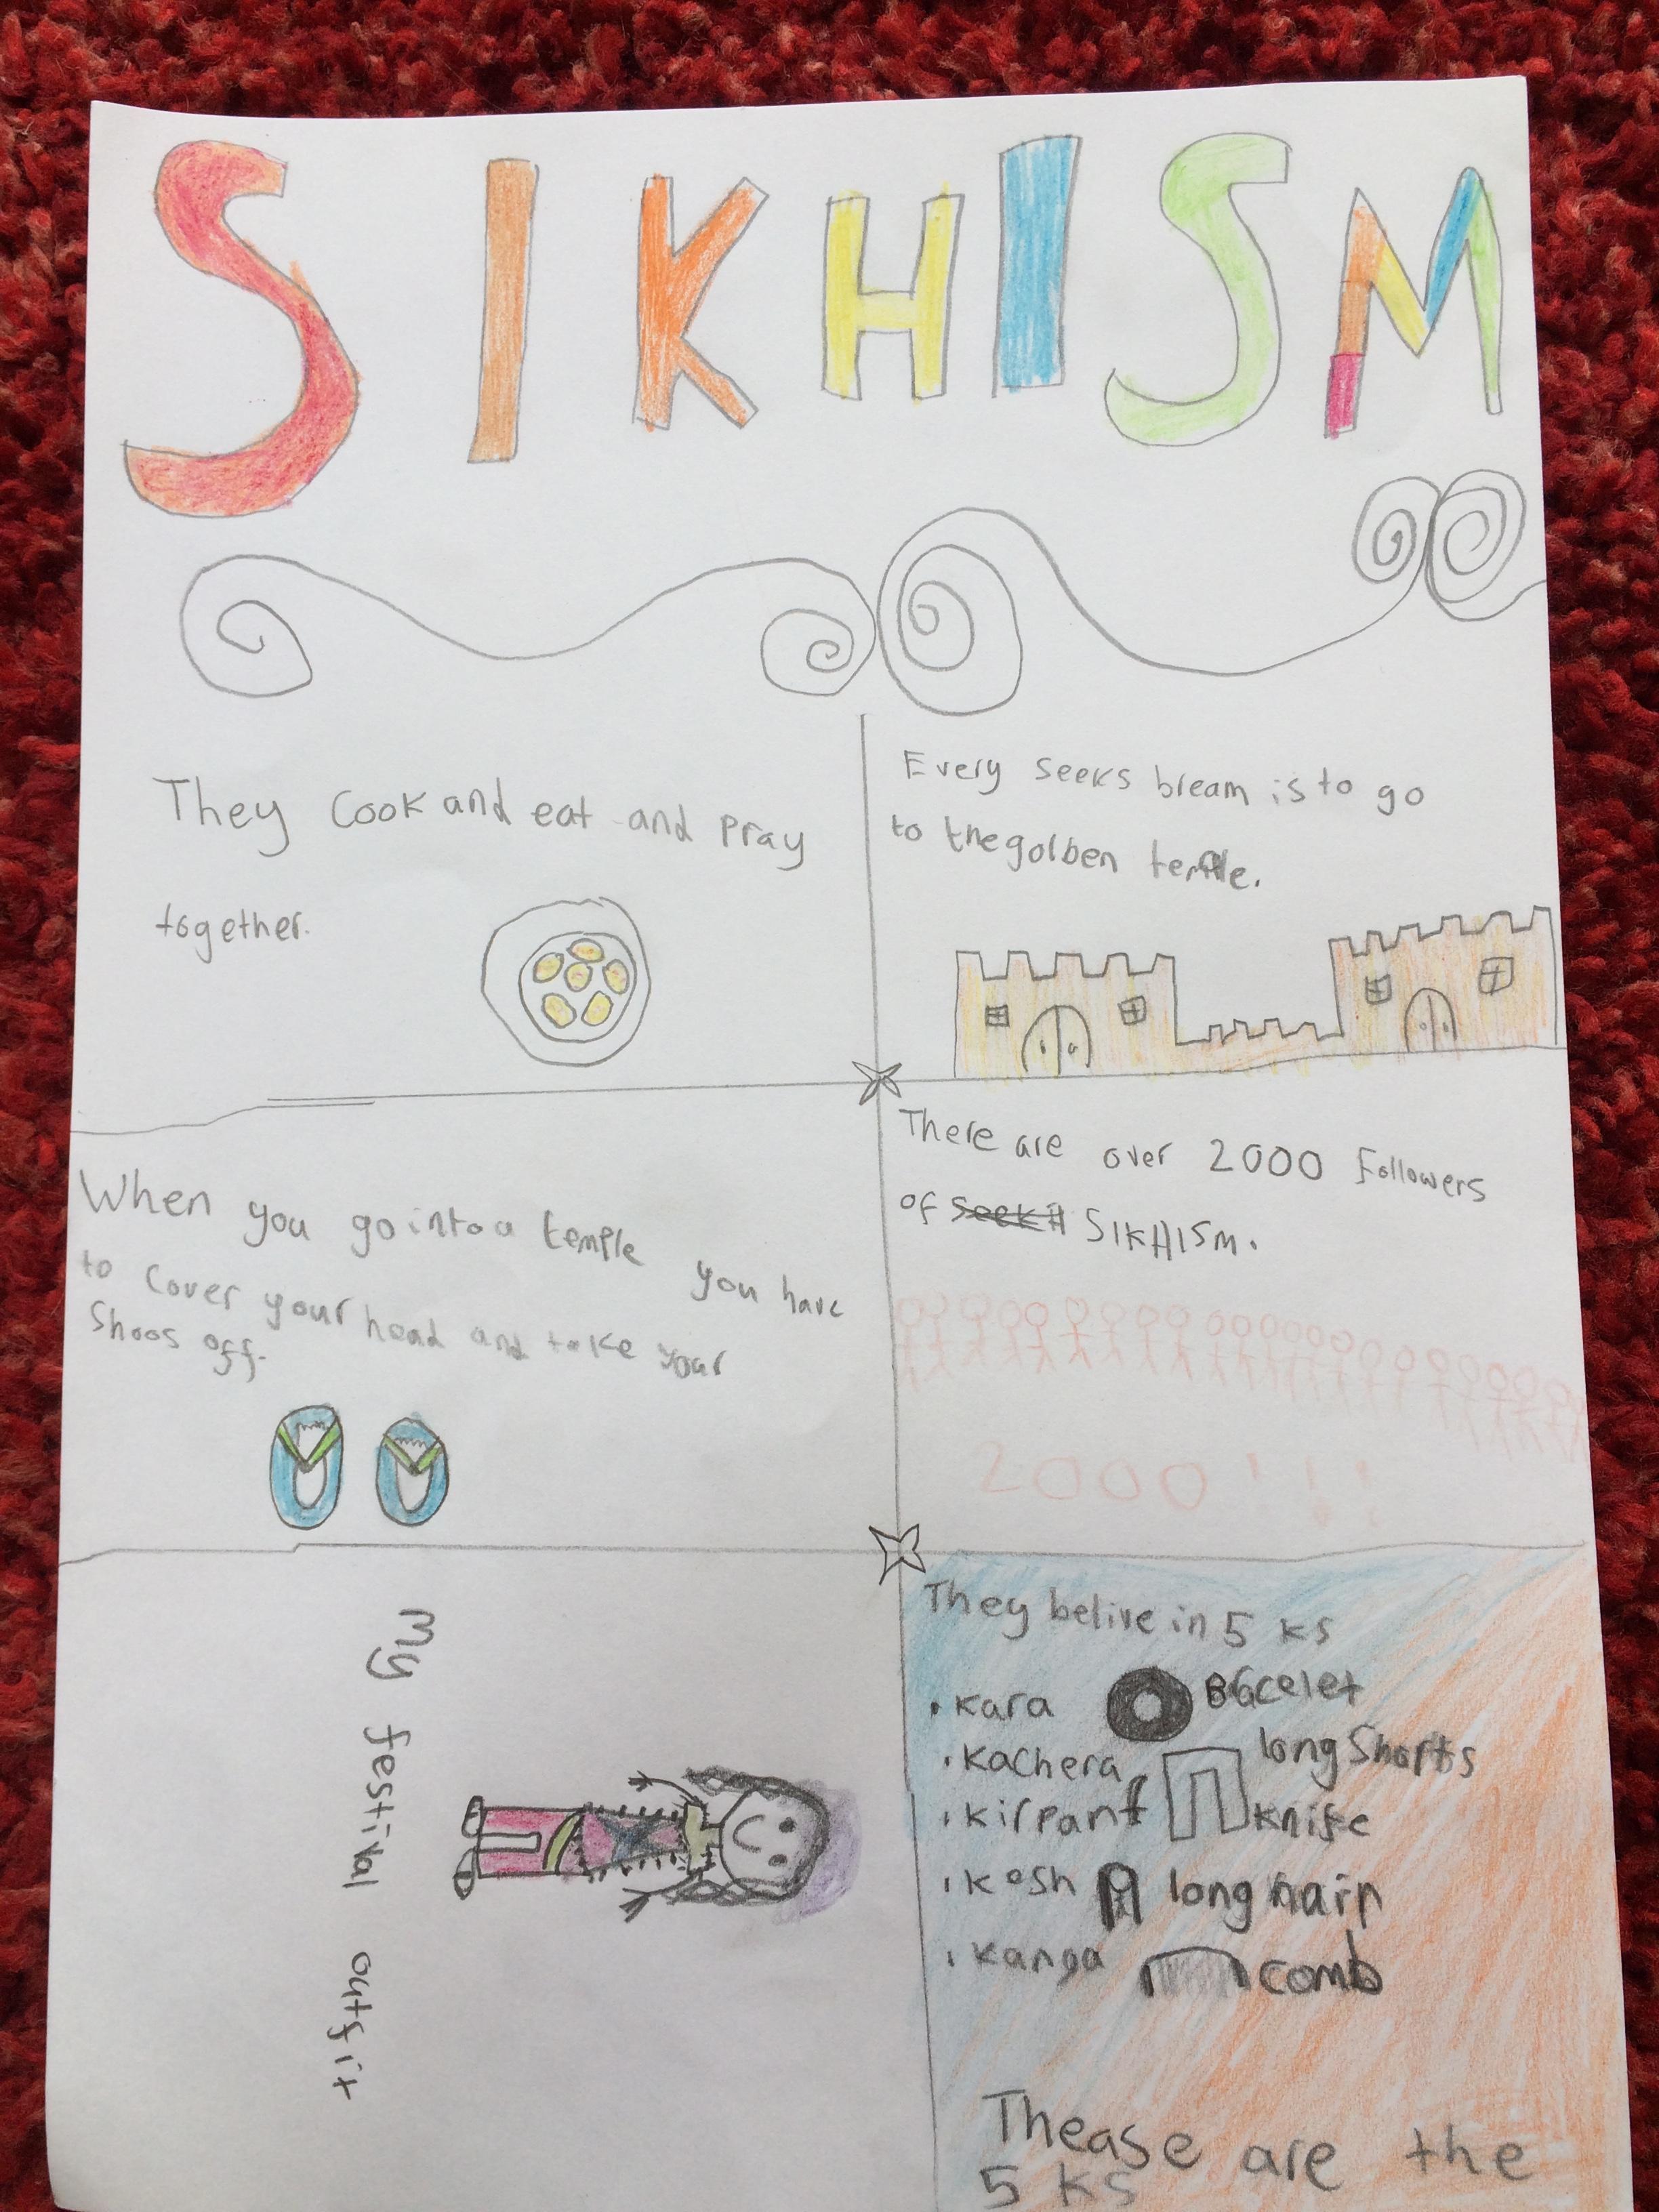 SIKHISM
They cook and eat and pray
together.
Every seeks bream is to go
to the golben temple.
When you go into a temple you have
to cover your head and take your
shoos off.
There are over 2000 Followers
of seekit SIKHISM.
2000!!!
My festival outfit
They belive in 5 ks
• kara Bracelet
• kachera long Shorts
• kirpan knife
• kesh long hair
• kanga comb
Thease are the
5 ks